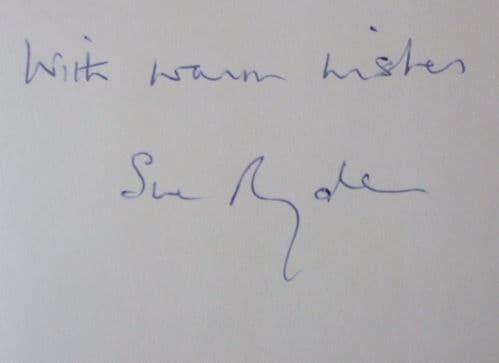 With warm wishes
Sue Ryder